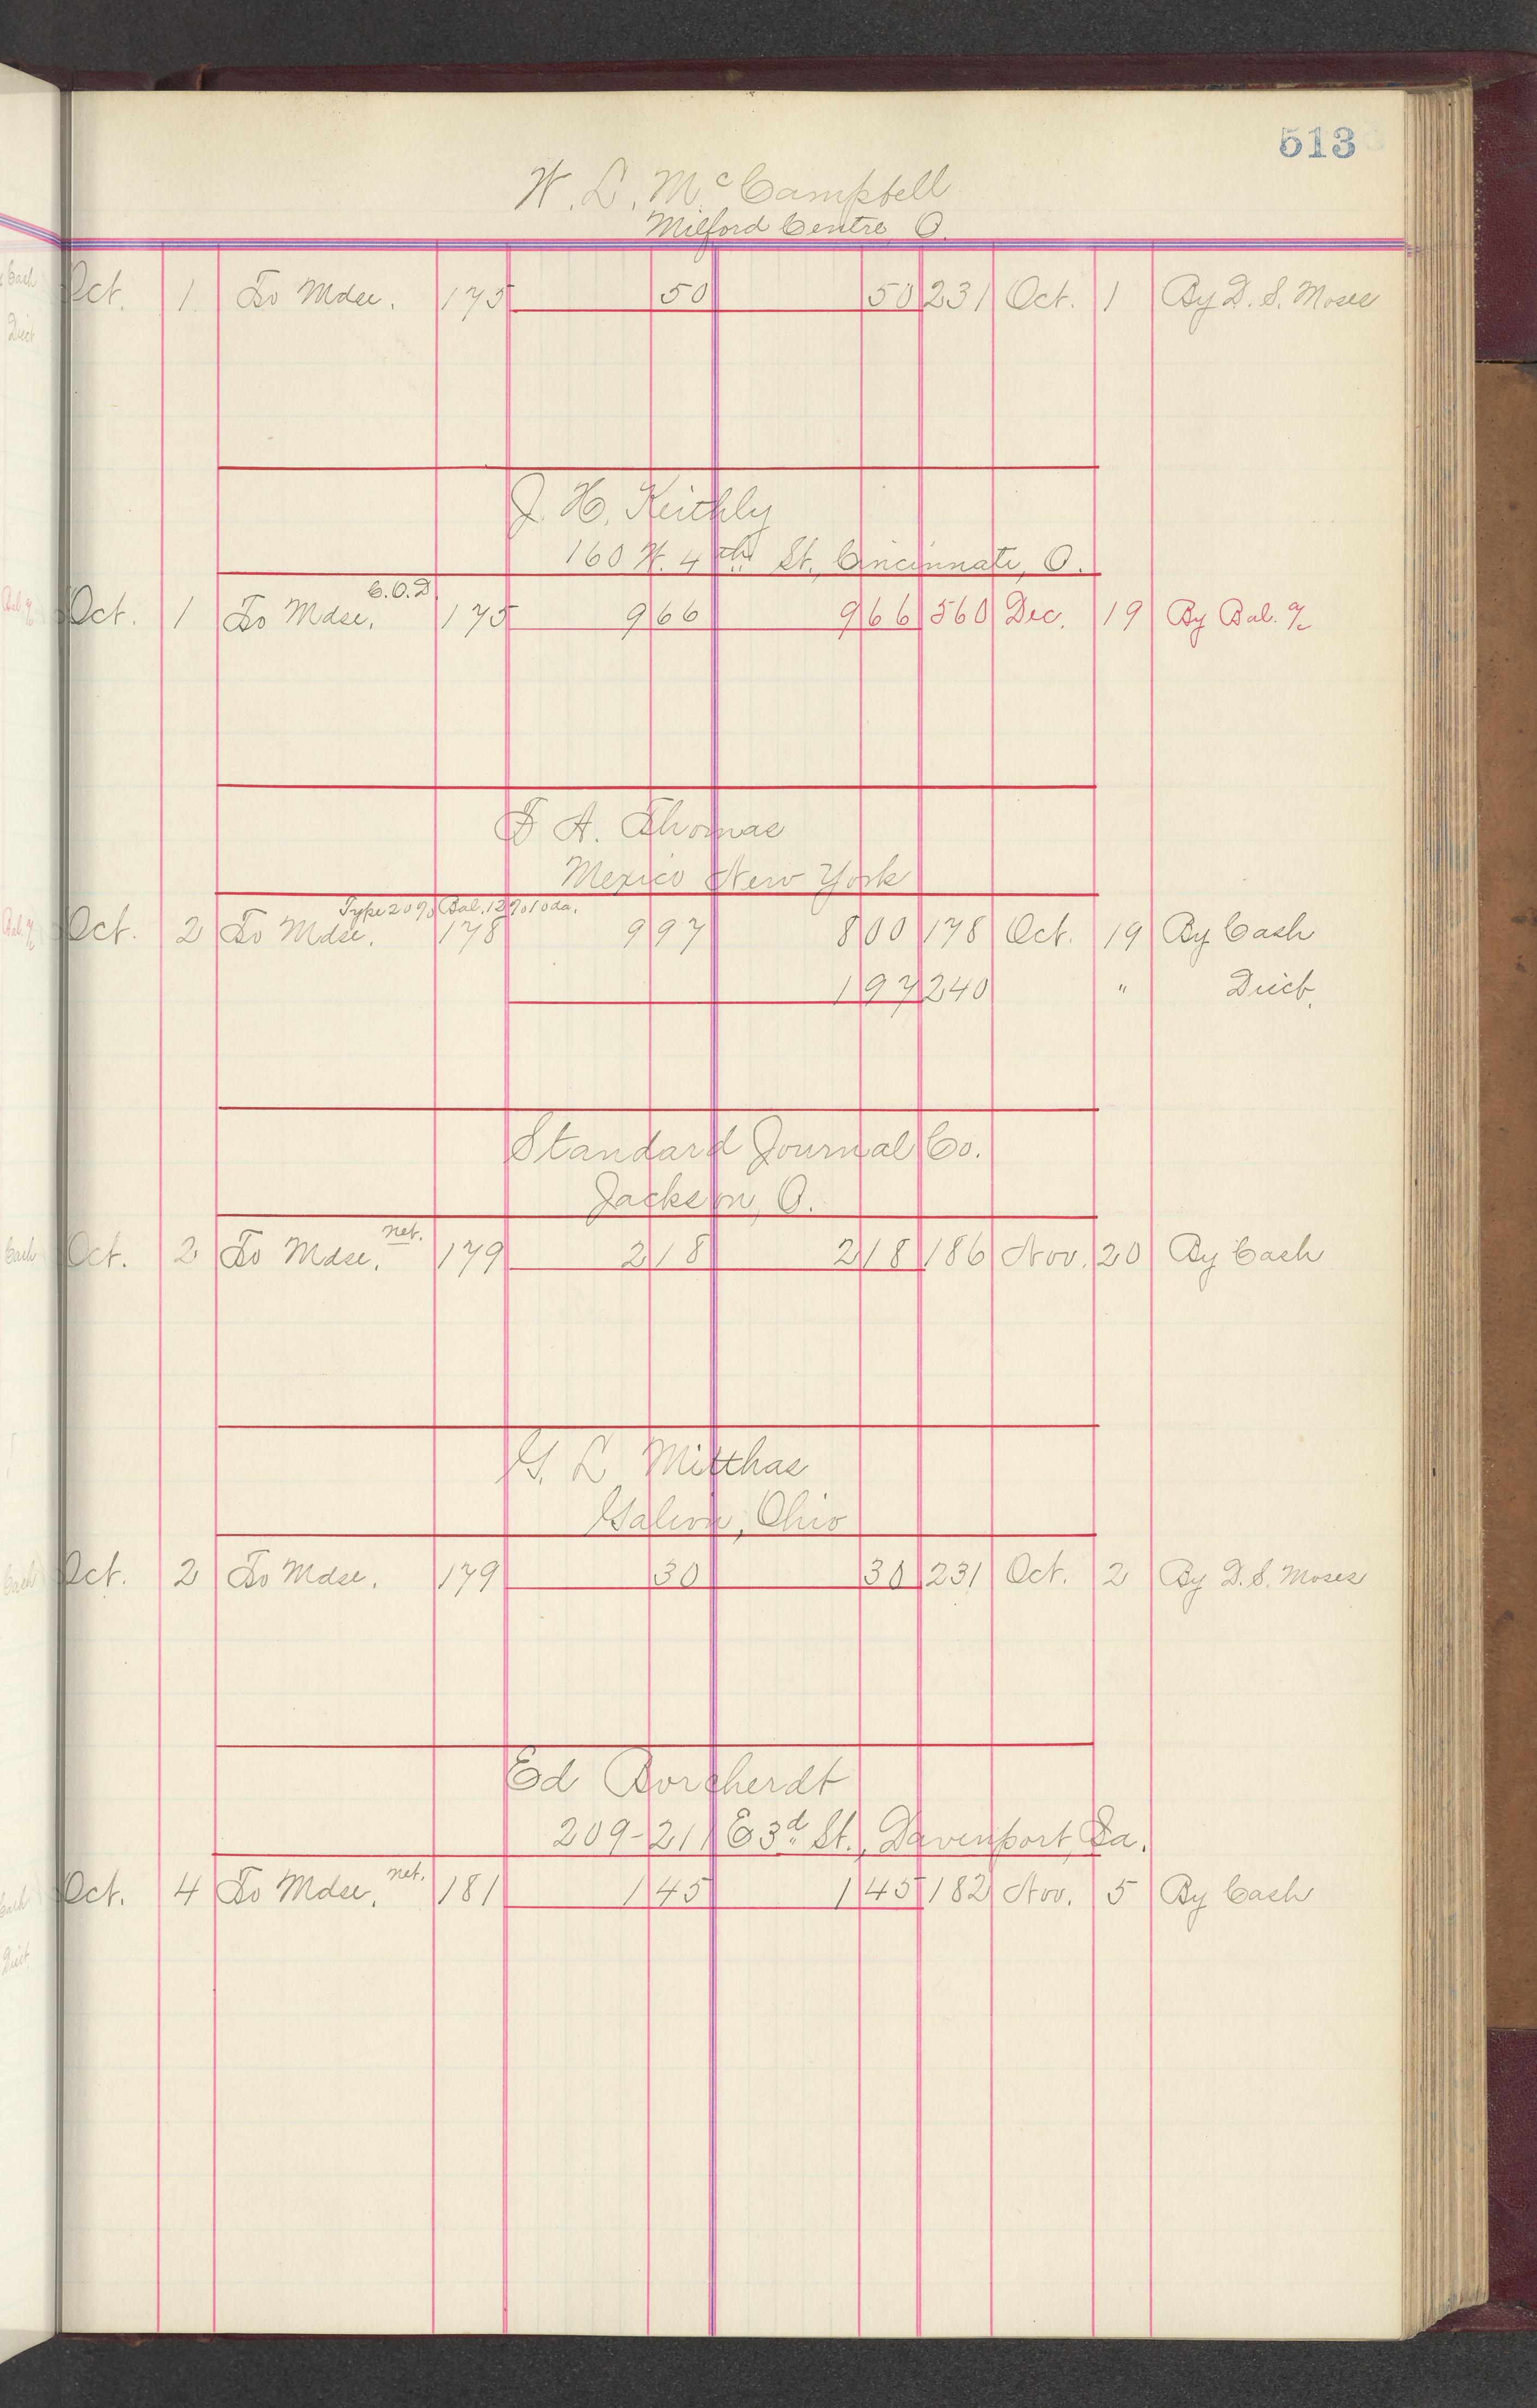 513
W. L. McCampbell
Milford Centre, O.
Oct. 1 To Mdse. 175 50 50 231 Oct. 1 By D. S. Moses
J. H. Keithly
160 W. 4th St., Cincinnati, O.
C.O.D.
Oct. 1 To Mdse. 175 9 66 9 66 560 Dec. 19 By Bal. %
F A. Thomas
Mexico New York
Type 20% Bal. 12% 10 da.
Oct. 2 To Mdse. 178 9 97 8 00 178 Oct. 19 By Cash
1 97 240 " Disct.
Standard Journal Co.
Jackson, O.
net.
Oct. 2 To Mdse. 179 2 18 2 18 186 Nov. 20 By Cash
G. L. Mitthas
Galion, Ohio
Oct. 2 To Mdse. 179 30 30 231 Oct. 2 By D. S. Moses
Ed Borcherdt
209-211 E 3d St., Davenport, Ia.
net.
Oct. 4 To Mdse. 181 1 45 1 45 182 Nov. 5 By Cash